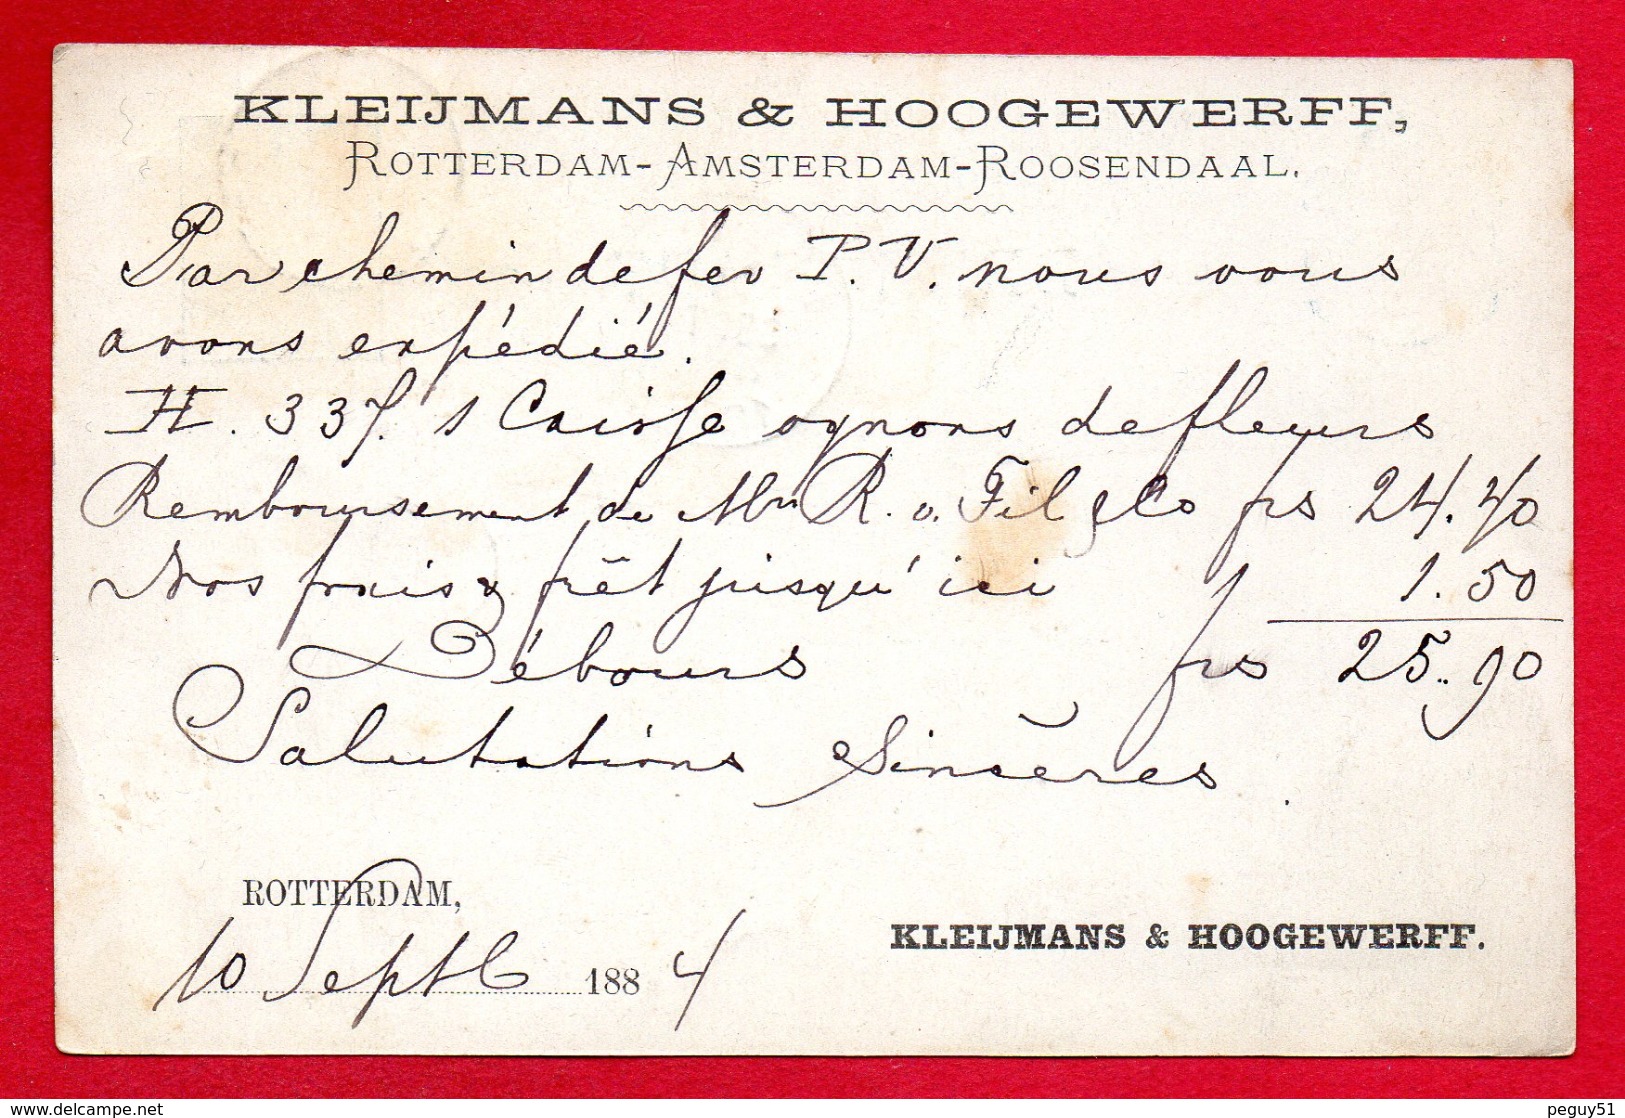 KLEIJMANS & HOOGEWERFF,
ROTTERDAM-AMSTERDAM-ROOSENDAAL.
Par chemin de fer P.V. nous vous
avons expédié.
H. 337. 1 Caisse ognons de fleurs
Remboursement de Mrs R. v. Til & Co frs 24.40
Nos frais & frêt jusqu'ici f 1.50
Débours frs 25.90
Salutations sincères.
ROTTERDAM,
10 Septb 1884
KLEIJMANS & HOOGEWERFF.
peguy51